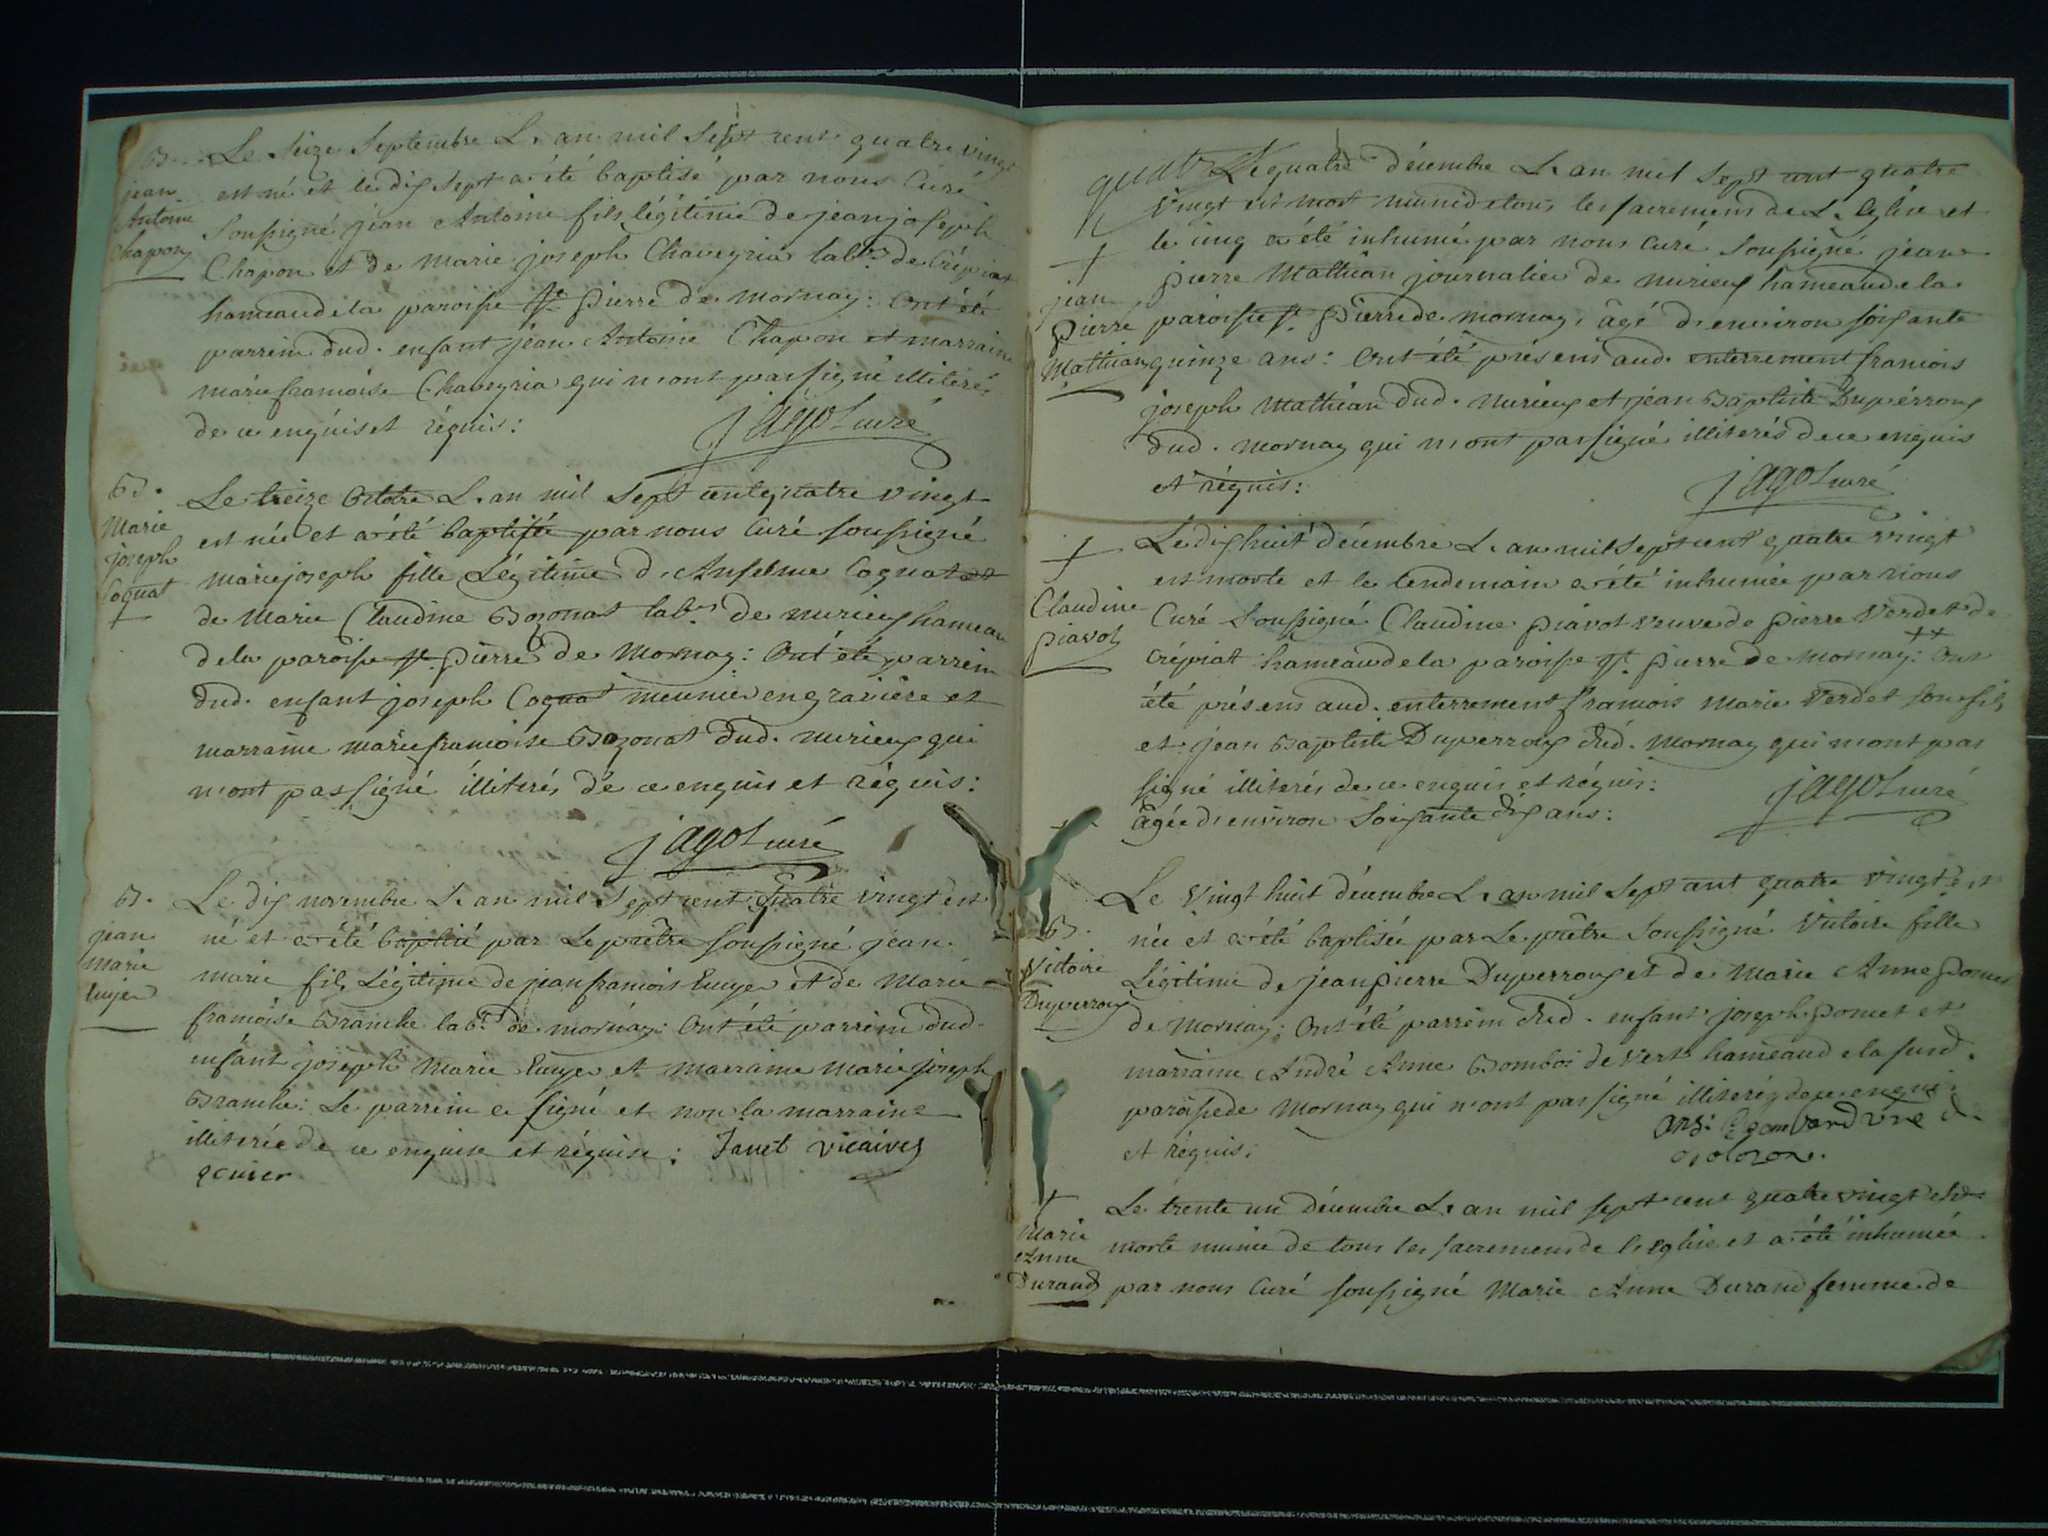 B. Le seize Septembre L'an mil sept cent quatre vingt
jean est né et le dix sept a été baptisé par nous Curé
Antoine soussigné jean Antoine fils légitime de jean joseph
Chapon Chapon et de marie joseph Chaveyria labr. de Crépiat
hameau de la paroisse St. pierre de mornay: Ont été
parrein dud. enfant jean Antoine Chapon et marraine
marie francoise Chaveyria qui n'ont pas signé illiterés
de ce enquis et réquis:
jagot curé
B. Le treize Octobre L'an mil sept cent quatre vingt
Marie est née et a été baptisée par nous Curé soussigné
joseph marie joseph fille Légitime d'Anselme Cognat et
Cognat de Marie Claudine Bozonat labr. de nurieux hameau
de la paroisse St. pierre de Mornay: Ont été parrein
dud. enfant joseph Cognat meunier en gravière et
marraine marie francoise Bozonat dud. nurieux qui
n'ont pas signé illiterés de ce enquis et réquis:
jagot curé
B. Le dix novembre L'an mil sept cent quatre vingt est
jean né et a été baptisé par Le prêtre soussigné jean
marie marie fils Légitime de jean francois Cuyer et de Marie
Cuyer francoise Branche labr. de mornay: Ont été parrein dud.
enfant joseph Marie Cuyer et marraine marie joseph
Branche: Le parrein a signé et non la marraine
illiterée de ce enquise et réquise: Janet vicaire
Le quatre décembre L'an mil sept cent quatre
vingt est mort muni de tous les sacremens de L'Eglise et
le cinq a été inhumé par nous Curé soussigné jean
jean pierre Mathian journalier de nurieux hameau de la
pierre paroisse St. pierre de mornay, âgé d'environ soixante
Mathian quinze ans: Ont été présens aud. enterrement francois
joseph Mathian dud. nurieux et jean Baptiste Duperroux
dud. mornay qui n'ont pas signé illiterés de ce enquis
et réquis:
jagot curé
Le dix huit décembre L'an mil sept cent quatre vingt
est morte et le lendemain a été inhumée par nous
Claudine Curé soussigné Claudine piavot veuve de pierre Verdet de
piavot Crépiat hameau de la paroisse St. pierre de mornay: Ont
été présens aud. enterrement francois marie Verdet son fils
et jean Baptiste Duperroux dud. mornay qui n'ont pas
signé illiterés de ce enquis et réquis:
jagot curé
âgée d'environ soixante dix ans:
Le vingt huit décembre L'an mil sept cent quatre vingt est
B. née et a été baptisée par Le prêtre soussigné Victoire fille
Victoire Légitime de jean pierre Duperroux et de Marie Anne pomet
Duperroux de Mornay: Ont été parrein dud. enfant joseph pomet et
marraine André Anne Bomboi de Vers hameau de la susd.
paroisse de Mornay qui n'ont pas signé illiterés de ce enquis
et réquis:
Le trente un décembre L'an mil sept cent quatre vingt est
Marie Anne morte munie de tous les sacremens de l'Eglise et a été inhumée
Durand par nous Curé soussigné Marie Anne Durand femme de